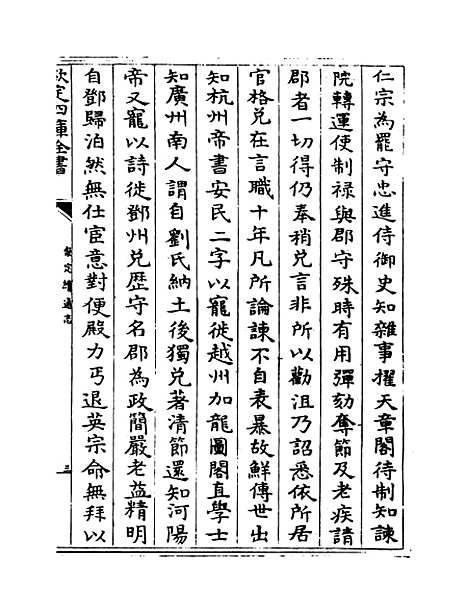 仁宗為罷守忠進侍御史知雜事擢天章閣待制知諫
院轉運使制禄與郡守殊時有用彈劾奪節及老疾請
郡者一切得仍奉稍兑言非所以勸沮乃詔悉依所居
官格兑在言職十年凡所論諫不自表暴故鮮傳世出
知杭州帝書安民二字以寵徙越州加龍圖閣直學士
知廣州南人謂自劉氏納土後獨兑著清節還知河陽
帝又寵以詩徙鄧州兑歴守名郡為政簡嚴老益精明
自鄧歸泊然無仕宦意對便殿力丐退英宗命無拜以
欽定四庫全書
欽定續通志
三